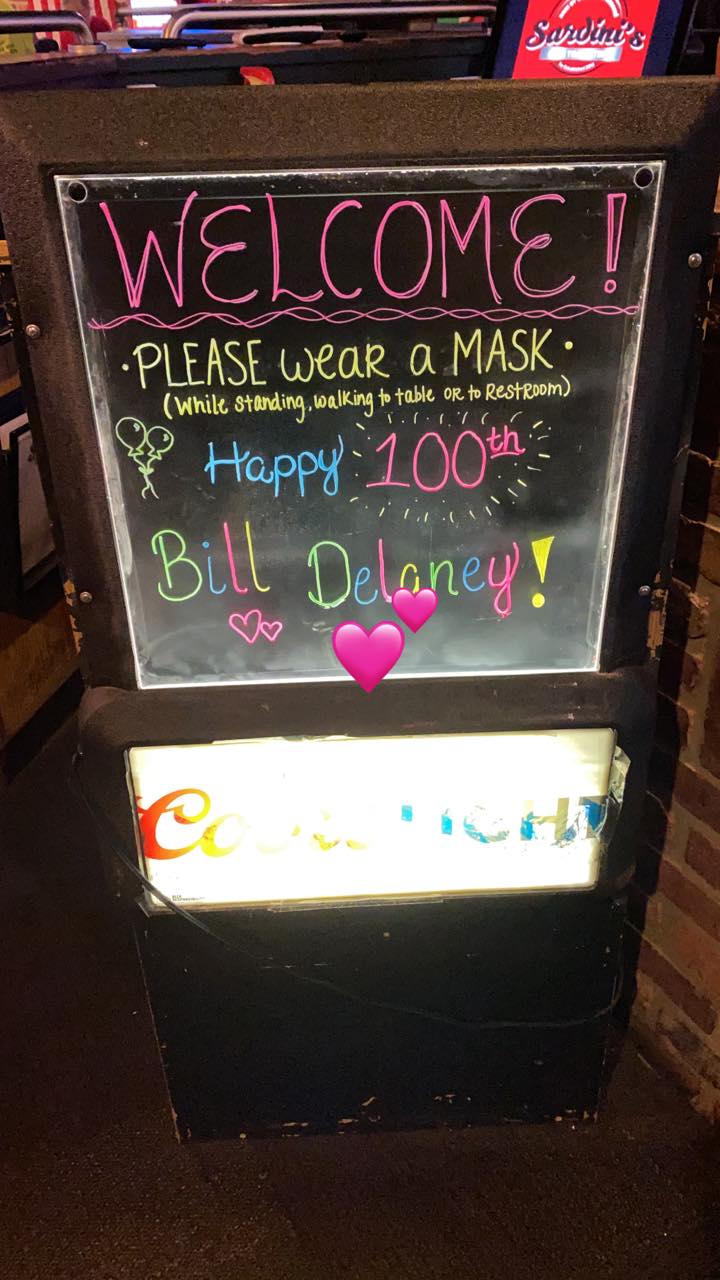 Sardini's
WELCOME!
·PLEASE wear a MASK·
(While standing, walking to table OR to RESTROOM)
Happy 100th
Bill Delaney!
Coors LIGHT